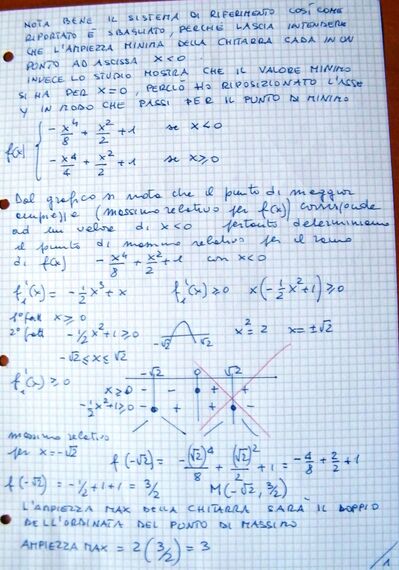 NOTA BENE IL SISTEMA DI RIFERIMENTO COSÌ COME
RIPORTATO È SBAGLIATO, PERCHÉ LASCIA INTENDERE
CHE L'AMPIEZZA MINIMA DELLA CHITARRA CADA IN UN
PUNTO AD ASCISSA X<0.
INVECE LO STUDIO MOSTRA CHE IL VALORE MINIMO
SI HA PER X=0, PERCIÒ HO RIPOSIZIONATO L'ASSE
Y IN MODO CHE PASSI PER IL PUNTO DI MINIMO
f(x) { -x⁴/8 + x²/2 + 1 se x<0
-x⁴/4 + x²/2 + 1 se x≥0
Dal grafico si nota che il punto di maggior
ampiezza (massimo relativo per f(x)) corrisponde
ad un valore di x<0 pertanto determiniamo
il punto di massimo relativo per il ramo
di f(x) -x⁴/8 + x²/2 + 1 con x<0
f₁'(x) = -1/2 x³ + x f₁'(x) ≥ 0 x(-1/2 x² + 1) ≥ 0
1° fatt x ≥ 0
2° fatt -1/2 x² + 1 ≥ 0 -√2 √2 x² = 2 x = ±√2
-√2 ≤ x ≤ √2
f₁'(x) ≥ 0 -√2 0 √2
x ≥ 0 - - + +
-1/2 x² + 1 ≥ 0 - + + -
massimo relativo
per x = -√2 f(-√2) = -(√2)⁴/8 + (√2)²/2 + 1 = -4/8 + 2/2 + 1
f(-√2) = -1/2 + 1 + 1 = 3/2 M(-√2, 3/2)
L'AMPIEZZA MAX DELLA CHITARRA SARÀ IL DOPPIO
DELL'ORDINATA DEL PUNTO DI MASSIMO
AMPIEZZA MAX = 2(3/2) = 3
/1